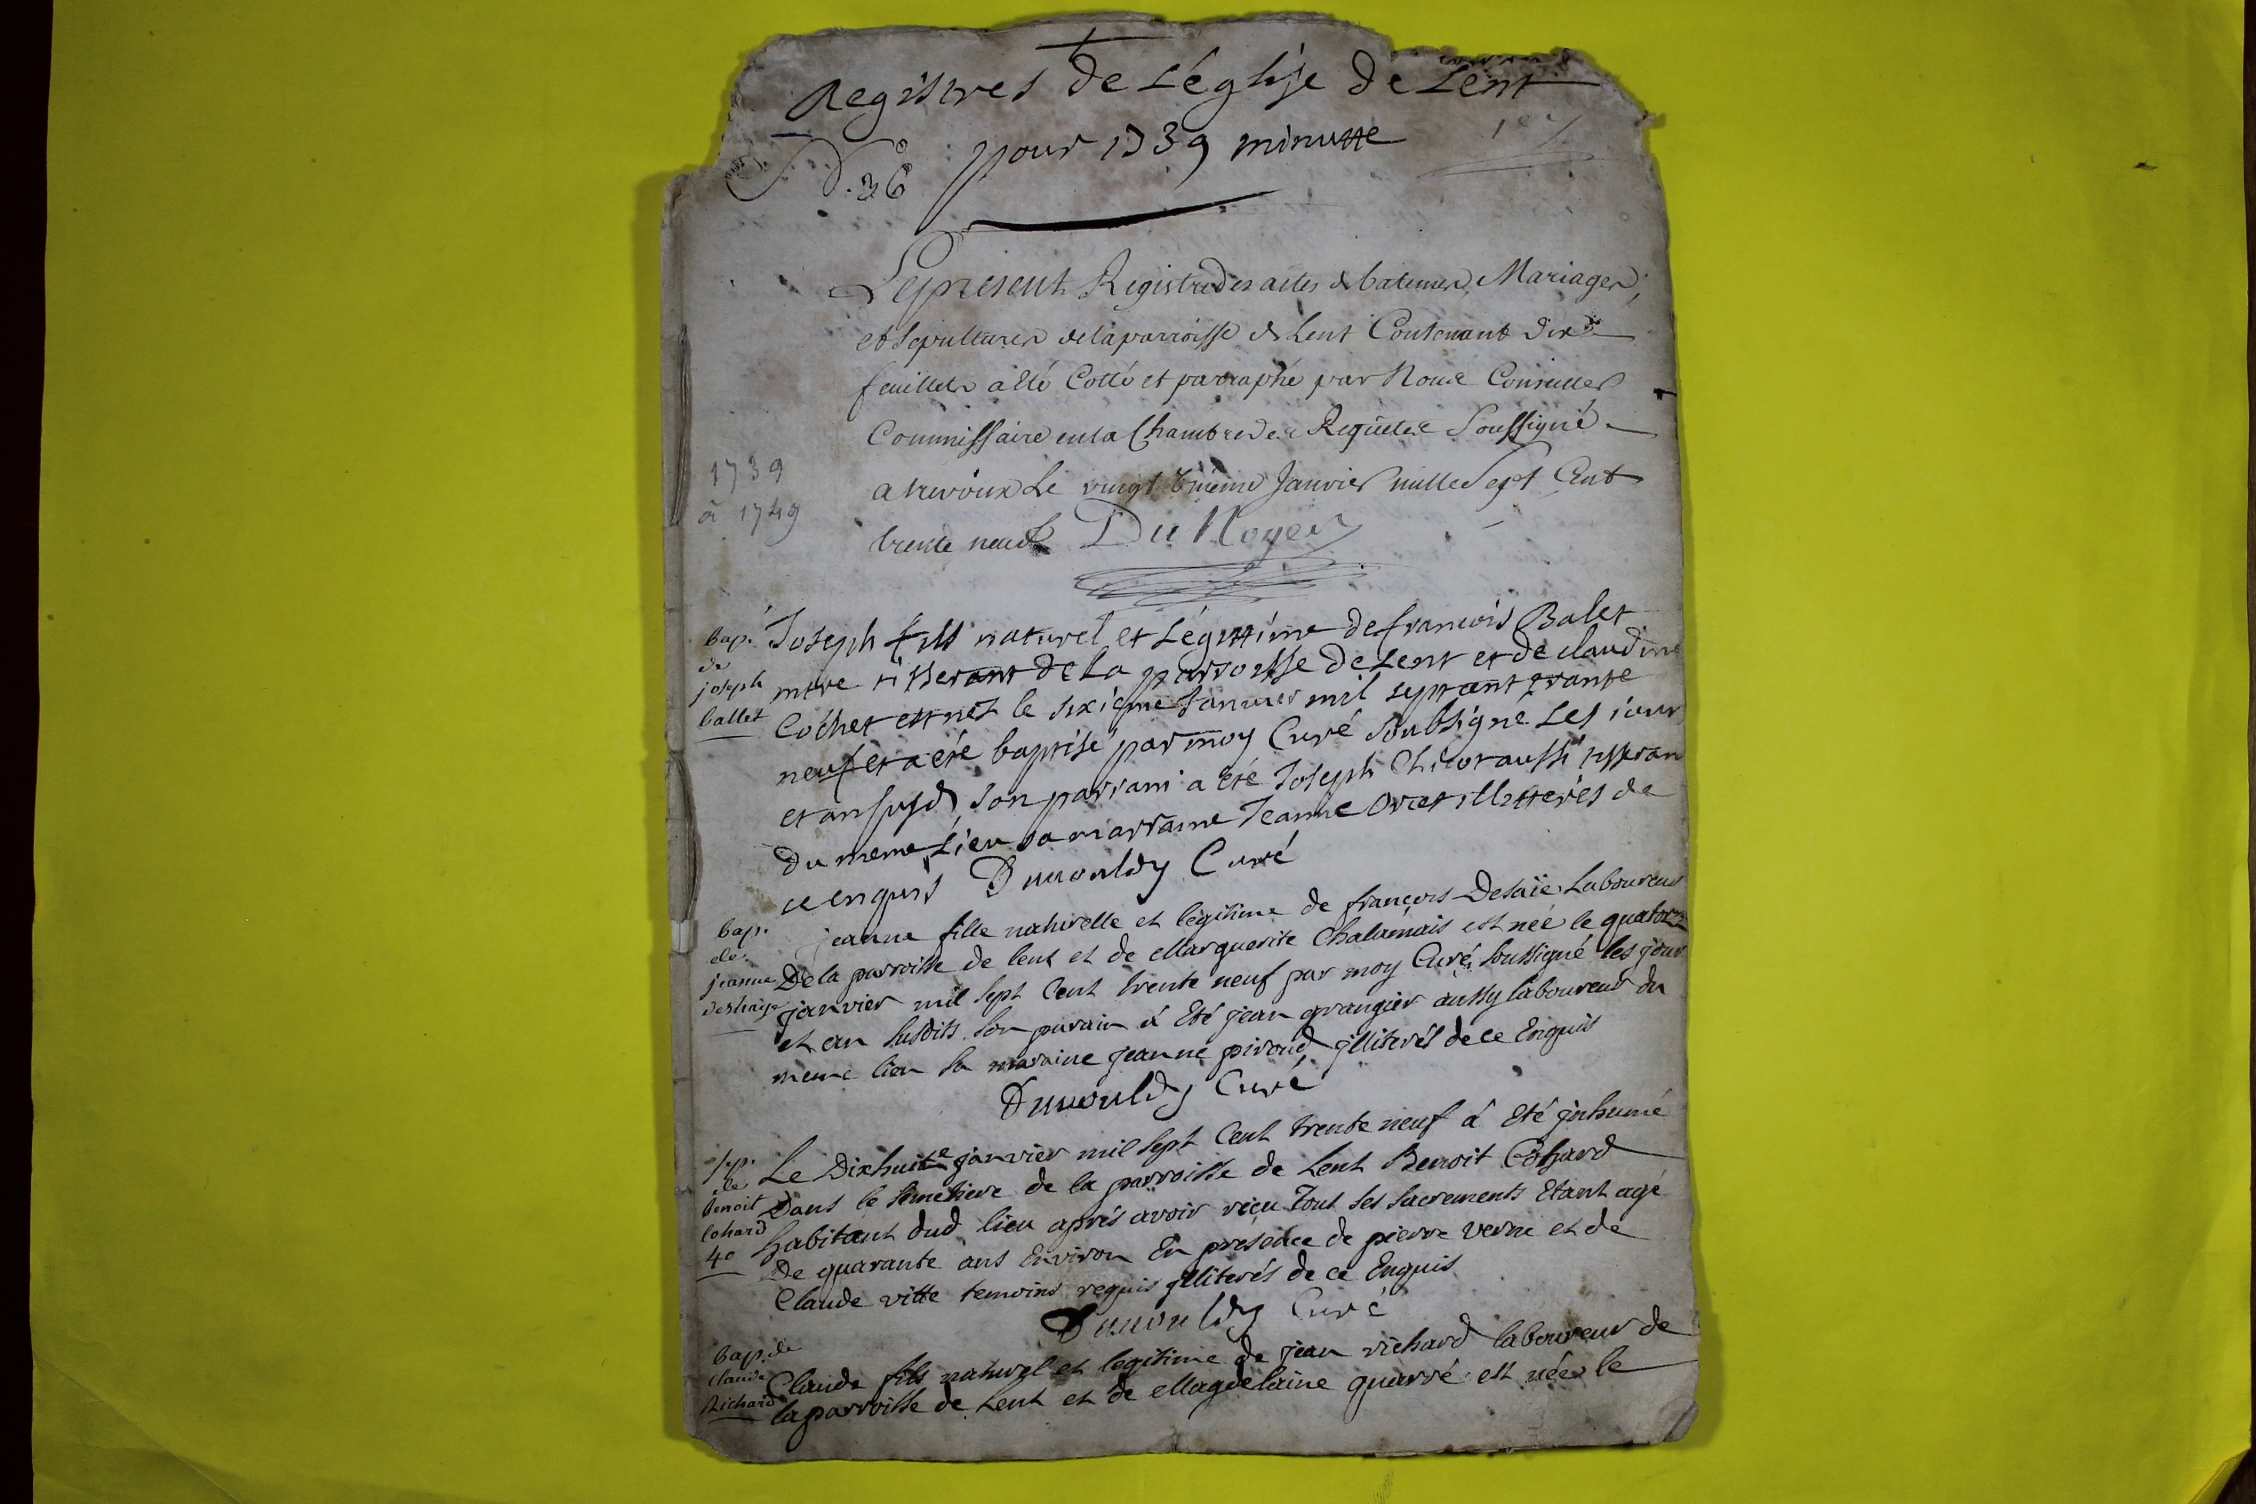 Registres de Léglise de Lent
pour 1739 minutte
1er
36
Le present Registre des actes de batemes, Mariages,
et Sepultures de la parroisse de Lent Contenant dix
feuillets a été Cotté et paraphé par Nous Conseiller
Commissaire en la Chambre des Requetes Soussigné
a trevoux Le vingt janvier mille Sept Cent
trente neuf Du Noyer
1739
à 1749
Bap.
de
joseph
ballet
Joseph fils naturel et Légittime de francois Balet
mtre tisserant de La parroisse de Lent et de claudine
Cochet est nez le sixieme Januier mil sept cent trante
neuf et a été baptisé par moy Curé soubsigné Les jour
et an susd. son parrain a été Joseph aussi tisseran
du meme Lieu sa marraine Jeanne illitterés de
ce enquis Curé
bap.
de
jeanne
deshaye
jeanne fille naturelle et legitime de françois Desaïe Laboureur
De la parroisse de lent et de Marguerite Chalamais est neé le quatorze
janvier mil sept Cent trente neuf par moy Curé soussigné les jour
et an susdits son parain à Eté jean grangier aussy laboureur du
meme lieu sa maraine jeanne piroud jlliterés de ce Enquis
Curé
sep.
de
benoit
Cohard
40
Le Dixhuite janvier mil sept Cent trente neuf à Eté jnhumé
Dans le Simetiere de la parroisse de Lent Benoit Cohard
habitant dud lieu aprés avoir reçu Tout ses sacrements Etant agé
De quarante ans Environ En presence de pierre verne et de
Claude vitte temoins requis jlliterés de ce Enquis
Curé
bap. de
claude
Richard
Claude fils naturel et legitime de jean richard laboureur de
la parroisse de Lent et de Magdelaine quarré est née le